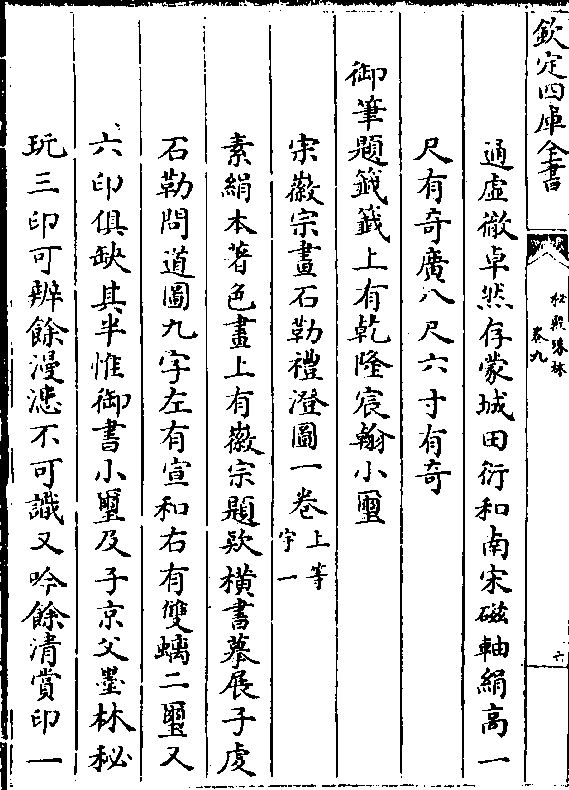 欽定四庫全書
秘殿珠林
卷九
六
通虛徹卓然存蒙城田衍和南宋磁軸絹高一
尺有奇廣八尺六寸有奇
御筆題籤籤上有乾隆宸翰小璽
宋徽宗畫石勒禮澄圖一卷上等宇一
素絹本著色畫上有徽宗題欵橫書摹展子虔
石勒問道圖九字左有宣和右有雙螭二璽又
六印俱缺其半惟御書小璽及子京父墨林秘
玩三印可辨餘漫漶不可識又吟餘清賞印一